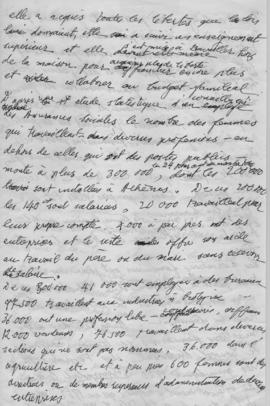 elle a acquis toutes les libertés que les lois
lui donnaient, elle a suivi un enseignement
supérieur et elle
de la maison, pour encore plus
et collaborer au budget familial
D'après une étude statistique d'un
des Assurances Sociales le nombre des femmes
qui travaillent dans diverses professions en
dehors de celles qui ont des postes publics
monte à plus de 300.000, dont les 200.000
sont installées à Athènes. De ces 200.000
les 140 sont salariées, 20.000 travaillent pour
leur propre compte. 5.000 à peu près ont des
entreprises et le reste offre son aide
au travail du père ou du mari sans avoir
De ces 300.000 41.000 sont employées à des bureaux
97.500 travaillent aux industries
26.000 ont une profession libre
12.000 vendeuses, 78.500 travaillent dans diverses
métiers qui ne sont pas nommés. 36.000 dans l'
agriculture etc. et à peu près 600 femmes sont des
directrices ou de membres supérieurs d'administration de diverses
entreprises